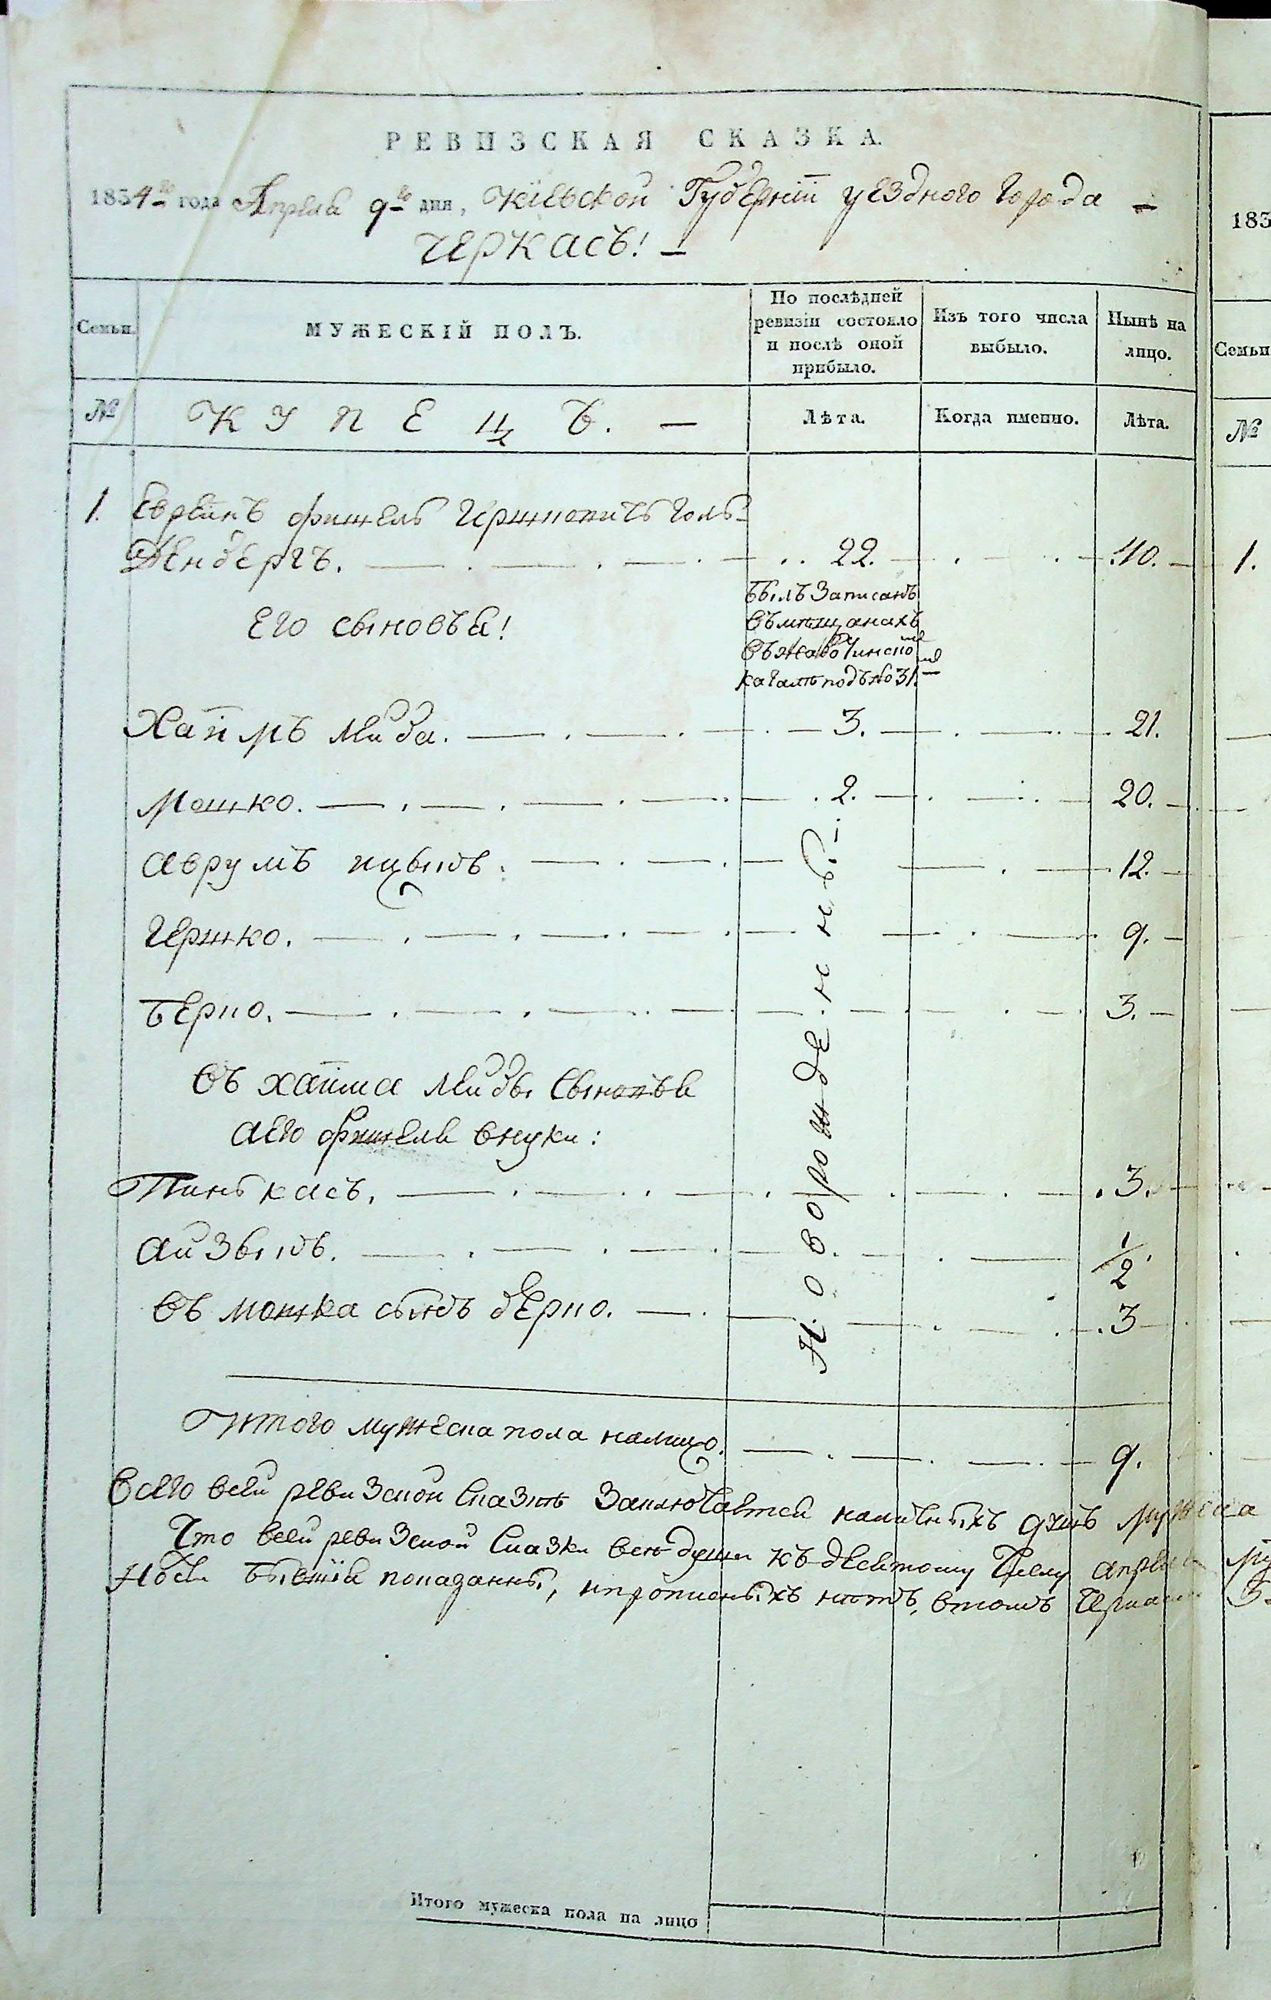 РЕВИЗСКАЯ СКАЗКА.
1834го года Апреля 9го дня, Кіевской Губерніи уездного города —
Черкасъ! —
Семьи.
МУЖЕСКІЙ ПОЛЪ.
По послѣдней
ревизіи состояло
и послѣ оной
прибыло.
Изъ того числа
выбыло.
Нынѣ на
лицо.
№
КУПЕЦЪ. —
Лѣта.
Когда именно.
Лѣта.
1. Евреинъ Фишель Гершковичъ Голь-
денбергъ. 22. 40.
былъ записанъ
въ мещанахъ
кагале подъ № 31.
Его сыновья!
Хаимъ Лейба. 3. 21.
Мошко. 2. 20.
Аврумъ 12.
Гершко. 9.
Берко. 3.
Новорожденны.
Съ Хаима Лейбы сыновья
а его Фишеля внуки:
Пинькасъ. 3.
Айзыкъ. 1/2.
Съ Мошка сынъ Берко. 3
Итого мужеска пола налицо. 9.
Всего в сей ревизской сказке заключается наличныхъ душъ мужеска
Что в сей ревизской сказки все души къ девятому числу апреля
показанны, и прописныхъ нетъ, в томъ
Итого мужеска пола на лицо
183
Семьи
№
1.